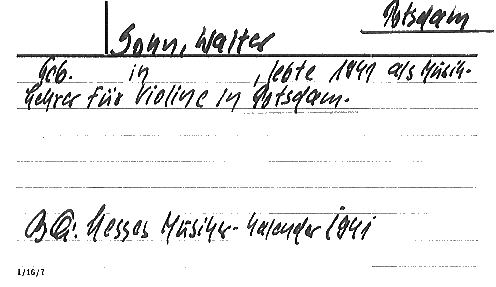 Potsdam
Sohn, Walter
Geb. in , lebte 1941 als Musik-
lehrer für Violine in Potsdam.
BQ: Hesses Musiker-Kalender 1941
1/16/7